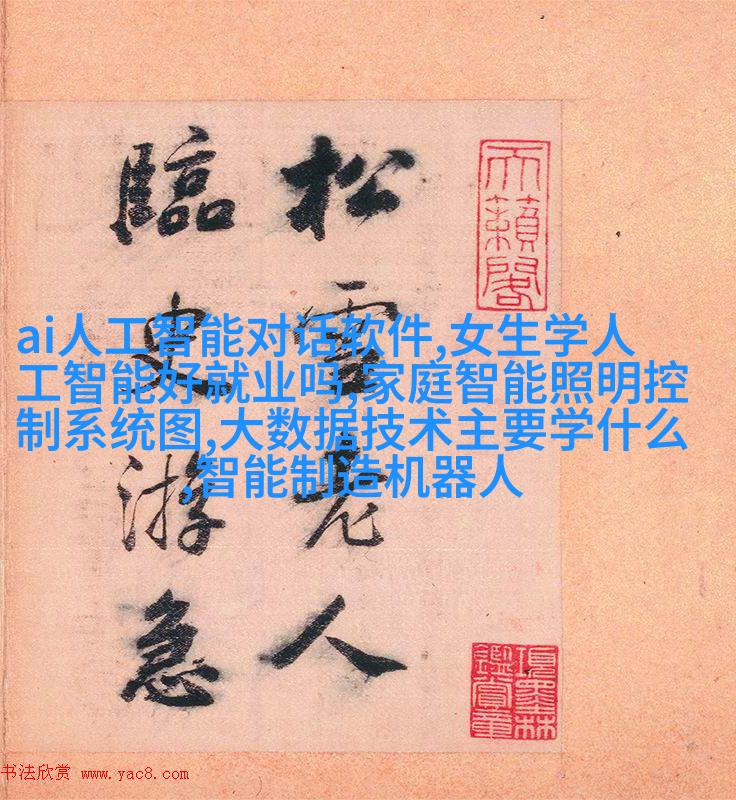 天籟閣
松雪老人
臨史游急
項墨林
鑑賞章
ai人工智能对话软件,女生学人
工智能好就业吗,家庭智能照明控
制系统图,大数据技术主要学什么
,智能制造机器人
书法欣赏 www.yac8.com